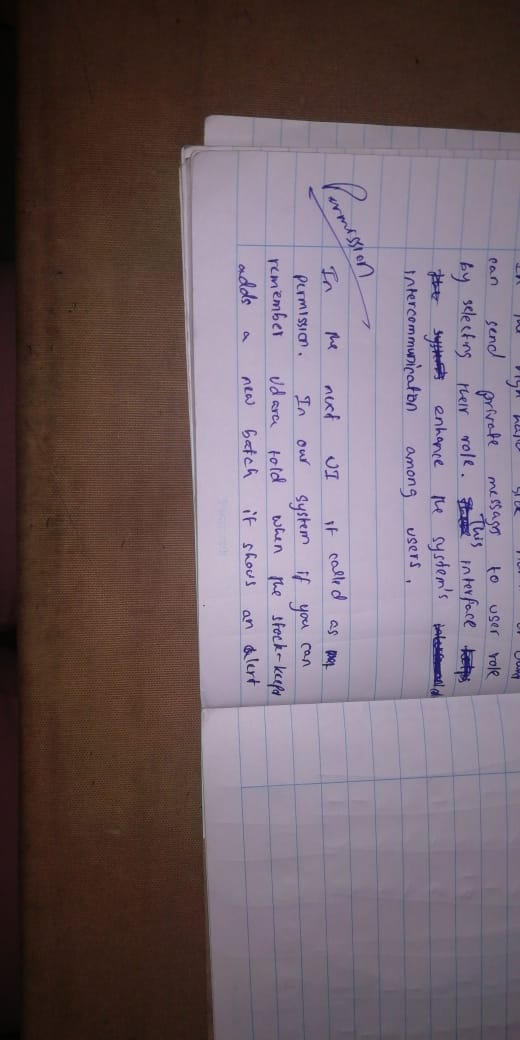 In the righ hand side
can send private messags to user role
by selecting their role. This interface
enhance the system's
intercommunicaton among users.
Permission
In the next UI it called as
permission. In our system if you can
remember Udara told when the stock-keepr
adds a new batch it shows an alert